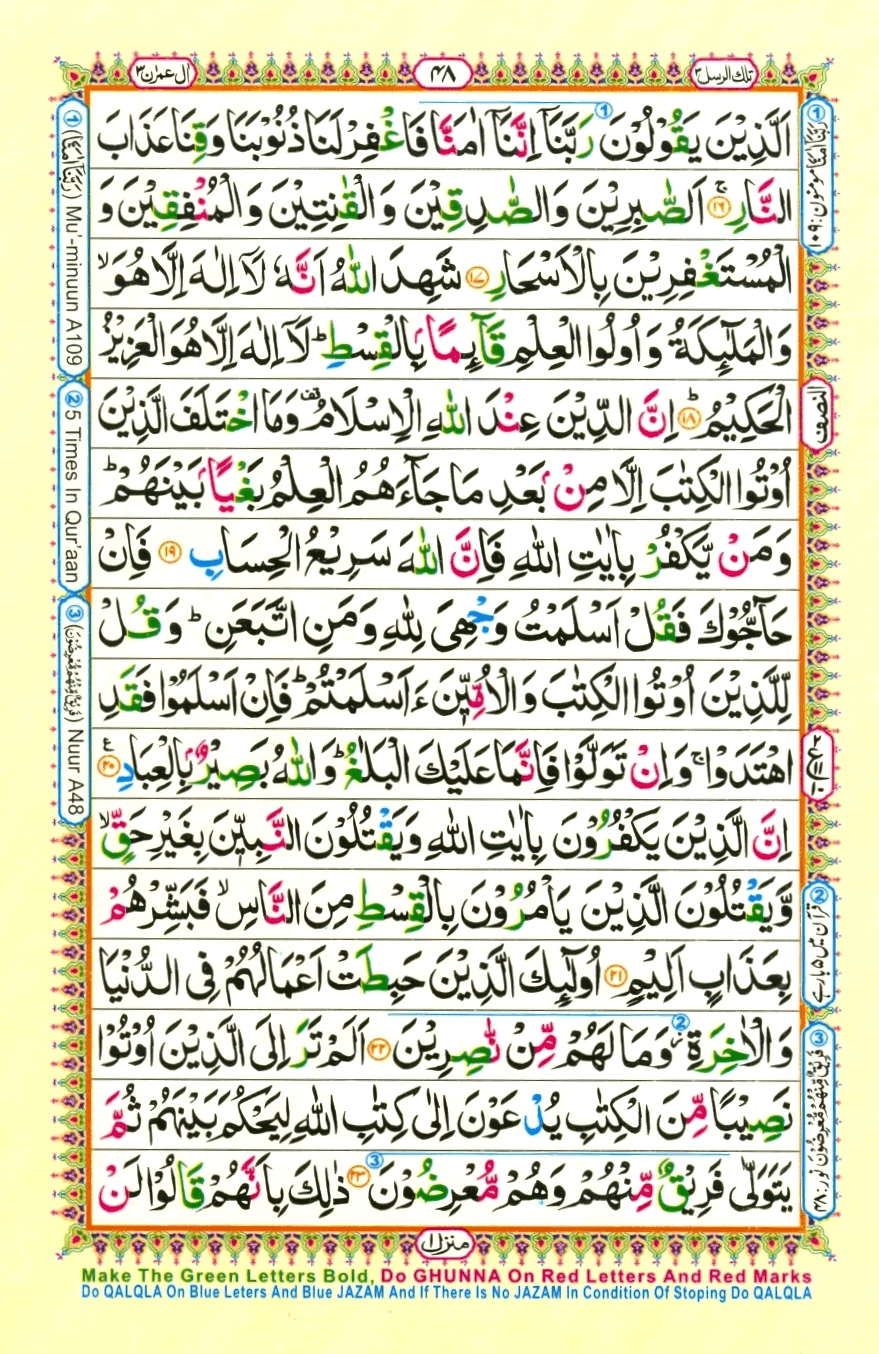 تلك الرسل ٣
٤٨
اٰل عمرٰن ٣
اَلَّذِيْنَ يَقُوْلُوْنَ رَبَّنَاۤ اِنَّنَاۤ اٰمَنَّا فَاغْفِرْ لَنَا ذُنُوْبَنَا وَقِنَا عَذَابَ
النَّارِ ۚ﴿١٦﴾ اَلصّٰبِرِيْنَ وَالصّٰدِقِيْنَ وَالْقٰنِتِيْنَ وَالْمُنْفِقِيْنَ وَ
الْمُسْتَغْفِرِيْنَ بِالْاَسْحَارِ ﴿١٧﴾ شَهِدَ اللّٰهُ اَنَّهٗ لَاۤ اِلٰهَ اِلَّا هُوَ ۙ
وَالْمَلٰٓئِكَةُ وَاُولُوا الْعِلْمِ قَآئِمًاۢ بِالْقِسْطِ ؕ لَاۤ اِلٰهَ اِلَّا هُوَ الْعَزِيْزُ
الْحَكِيْمُ ؕ﴿١٨﴾ اِنَّ الدِّيْنَ عِنْدَ اللّٰهِ الْاِسْلَامُ ۫ وَمَا اخْتَلَفَ الَّذِيْنَ
اُوْتُوا الْكِتٰبَ اِلَّا مِنْۢ بَعْدِ مَا جَآءَهُمُ الْعِلْمُ بَغْيًاۢ بَيْنَهُمْ ؕ
وَمَنْ يَّكْفُرْ بِاٰيٰتِ اللّٰهِ فَاِنَّ اللّٰهَ سَرِيْعُ الْحِسَابِ ﴿١٩﴾ فَاِنْ
حَآجُّوْكَ فَقُلْ اَسْلَمْتُ وَجْهِيَ لِلّٰهِ وَمَنِ اتَّبَعَنِ ؕ وَقُلْ
لِّلَّذِيْنَ اُوْتُوا الْكِتٰبَ وَالْاُمِّيّٖنَ ءَاَسْلَمْتُمْ ؕ فَاِنْ اَسْلَمُوْا فَقَدِ
اهْتَدَوْا ۚ وَاِنْ تَوَلَّوْا فَاِنَّمَا عَلَيْكَ الْبَلٰغُ ؕ وَاللّٰهُ بَصِيْرٌۢ بِالْعِبَادِ ﴿٢٠﴾
اِنَّ الَّذِيْنَ يَكْفُرُوْنَ بِاٰيٰتِ اللّٰهِ وَيَقْتُلُوْنَ النَّبِيّٖنَ بِغَيْرِ حَقٍّ ۙ
وَّيَقْتُلُوْنَ الَّذِيْنَ يَاْمُرُوْنَ بِالْقِسْطِ مِنَ النَّاسِ ۙ فَبَشِّرْهُمْ
بِعَذَابٍ اَلِيْمٍ ﴿٢١﴾ اُولٰٓئِكَ الَّذِيْنَ حَبِطَتْ اَعْمَالُهُمْ فِي الدُّنْيَا
وَالْاٰخِرَةِ ؗ وَمَا لَهُمْ مِّنْ نّٰصِرِيْنَ ﴿٢٢﴾ اَلَمْ تَرَ اِلَى الَّذِيْنَ اُوْتُوْا
نَصِيْبًا مِّنَ الْكِتٰبِ يُدْعَوْنَ اِلٰى كِتٰبِ اللّٰهِ لِيَحْكُمَ بَيْنَهُمْ ثُمَّ
يَتَوَلّٰى فَرِيْقٌ مِّنْهُمْ وَهُمْ مُّعْرِضُوْنَ ﴿٢٣﴾ ذٰلِكَ بِاَنَّهُمْ قَالُوْا لَنْ
① (رَبَّنَا اٰمَنَّا) مومنون: ١٠٩
النصف
② قرآن میں ۵ بار ہے
③ فَرِيْقٌ مِّنْهُمْ مُّعْرِضُوْنَ نور: ٤٨
① (رَبَّنَا اٰمَنَّا) Mu'-minuun A 109
② 5 Times In Qur'aan
③ (فَرِيْقٌ مِّنْهُمْ مُّعْرِضُوْنَ) Nuur A48
منزل ١
Make The Green Letters Bold, Do GHUNNA On Red Letters And Red Marks
Do QALQLA On Blue Leters And Blue JAZAM And If There Is No JAZAM In Condition Of Stoping Do QALQLA